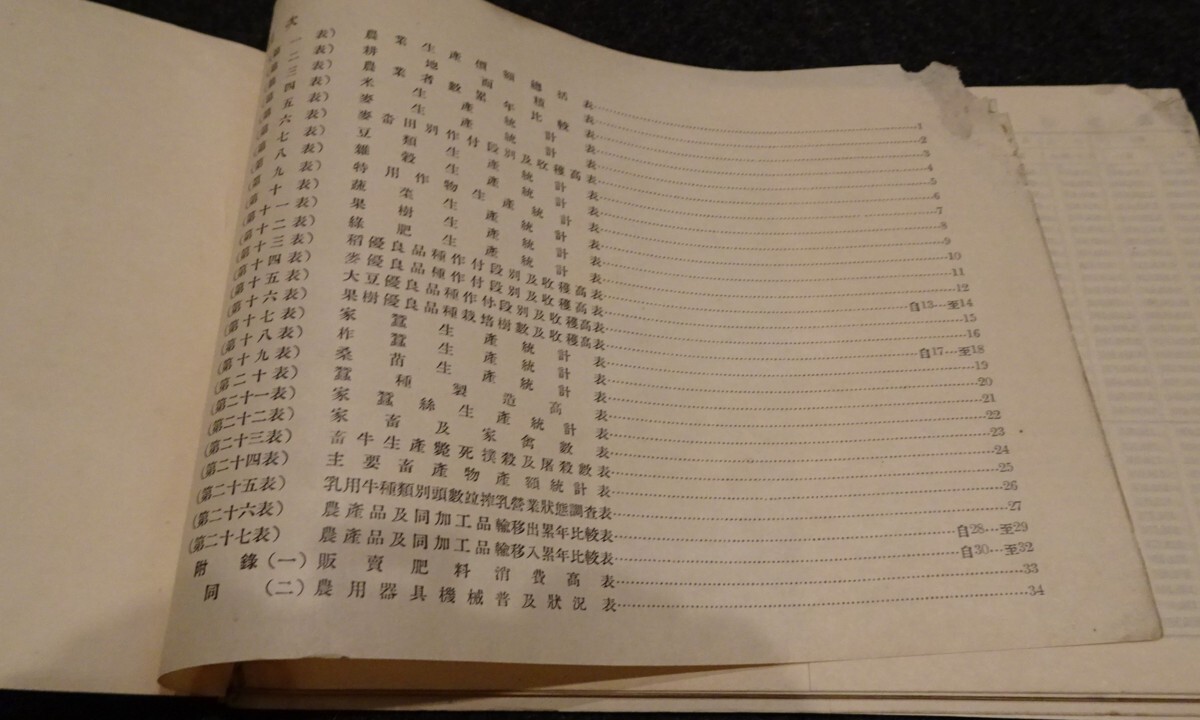 次
(第一表) 農業生產價額總括表 1
(第二表) 耕地面積表 2
(第三表) 農業者數累年比較表 3
(第四表) 米生產統計表 4
(第五表) 麥生產統計表 5
(第六表) 麥畓田別作付段別及收穫高表 6
(第七表) 豆類生產統計表 7
(第八表) 雜穀生產統計表 8
(第九表) 特用作物生產統計表 9
(第十表) 蔬菜生產統計表 10
(第十一表) 果樹生產統計表 11
(第十二表) 綠肥生產統計表 12
(第十三表) 稻優良品種作付段別及收穫高表 自13…至14
(第十四表) 麥優良品種作付段別及收穫高表 15
(第十五表) 大豆優良品種作付段別及收穫高表 16
(第十六表) 果樹優良品種栽培樹數及收穫高表 自17…至18
(第十七表) 家蠶生產統計表 19
(第十八表) 柞蠶生產統計表 20
(第十九表) 桑苗生產統計表 21
(第二十表) 蠶種製造高表 22
(第二十一表) 家蠶絲生產統計表 23
(第二十二表) 家畜及家禽數表 24
(第二十三表) 畜牛生產斃死撲殺及屠殺數表 25
(第二十四表) 主要畜產物產額統計表 26
(第二十五表) 乳用牛種類別頭數竝搾乳營業狀態調査表 27
(第二十六表) 農產品及同加工品輸移出累年比較表 自28…至29
(第二十七表) 農產品及同加工品輸移入累年比較表 自30…至32
附錄(一) 販賣肥料消費高表 33
同(二) 農用器具機械普及狀況表 34